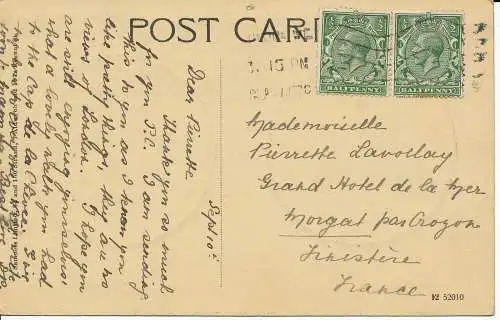 POST CARD
3.15 PM
HALFPENNY HALFPENNY
Sept 10th
Dear Pierrette
Thank you so much
for your P.C. I am sending
this to you as I know you
like pretty things, they are no
views of London. I hope you
are all enjoying yourselves:
what lovely walks you had
to the Cap de la Chèvre.
Mademoiselle
Pierrette Lavollay
Grand Hotel de la Mer
Morgat par Crozon
Finistère
France
52010